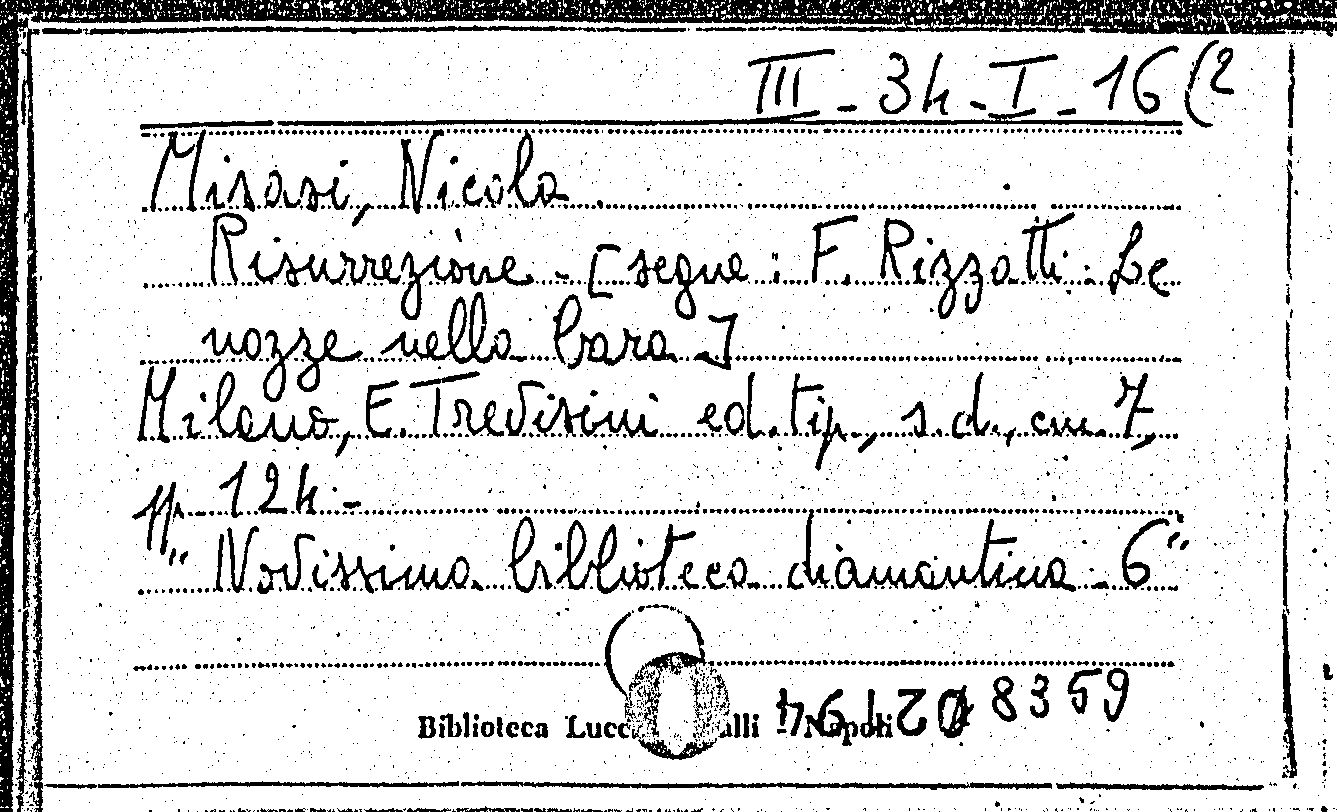 III - 34 - I - 16 (2
Misasi, Nicola.
Risurrezione - [segue: F. Rizzatti. Le
nozze nella bara]
Milano, E. Trevisini ed. tip., s.d., cm. 7,
pp. 124. -
"Novissima biblioteca diamantina - 6"
8359
Biblioteca Lucc alli - Napoli